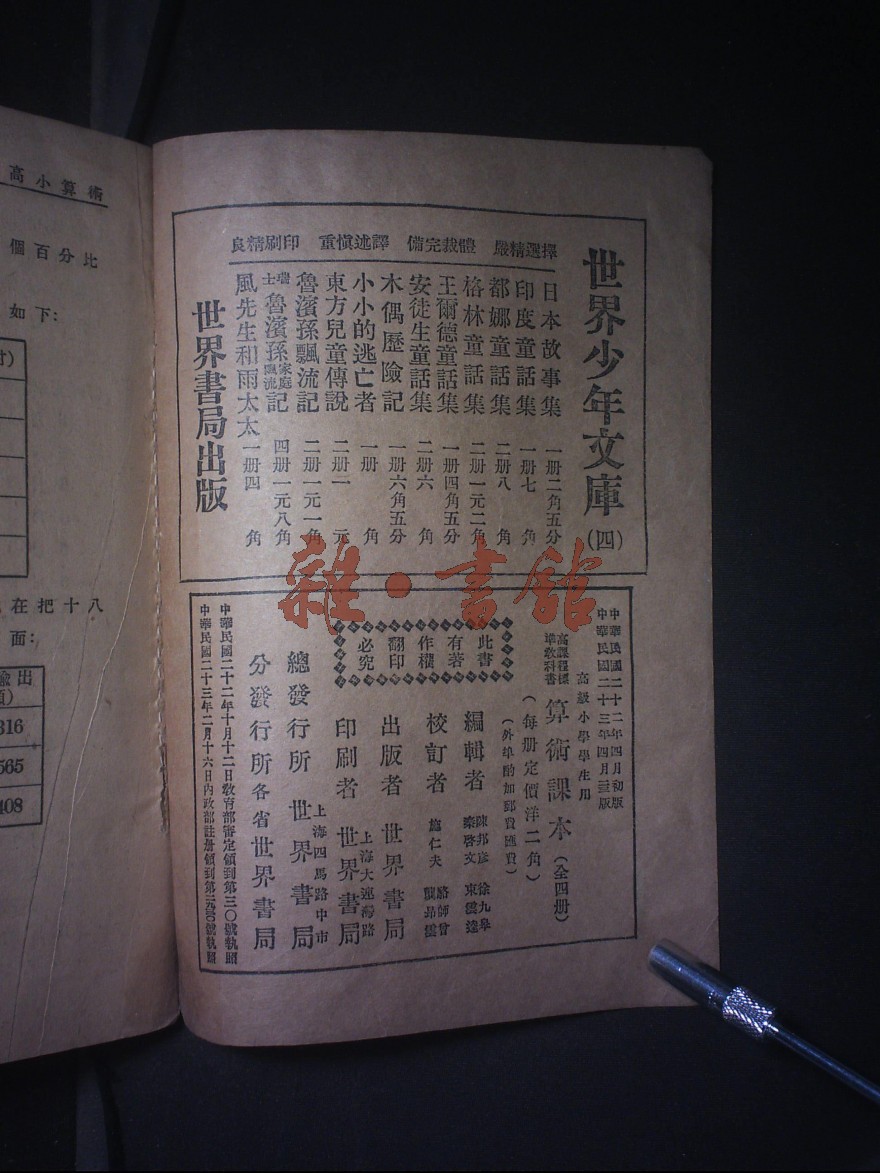 高小算術
個百分比
如下：
在把十八
面：
輸出
316
565
408
世界少年文庫(四)
擇選精嚴 體裁完備 譯述慎重 印刷精良
日本故事集 一册二角五分
印度童話集 一册七角
都娜童話集 二册八角
格林童話集 二册一元二角
王爾德童話集 一册四角五分
安徒生童話集 二册六角
木偶歷險記 一册六角五分
小小的逃亡者 一册角
東方兒童傳說 二册一元
魯濱孫飄流記 二册一元一角
瑞士魯濱孫家庭飄流記 四册一元八角
風先生和雨太太 一册四角
世界書局出版
雜·書館
中華民國二十二年四月初版
中華民國二十三年四月版
高級小學學生用
高小課程標準教科書 算術課本 (全四册)
(每册定價洋二角)
(外埠酌加郵費匯費)
此書有著作權翻印必究
編輯者 陳邦彥 徐九皋 秦啓文 束雲逵
校訂者 施仁夫 駱師曾 戴昂霄
出版者 世界書局
印刷者 上海大連灣路 世界書局
總發行所 上海四馬路中市 世界書局
分發行所 各省世界書局
中華民國二十二年十月十二日敎育部審定領到第三〇號執照
中華民國二十三年二月十六日內政部註册領到第號執照